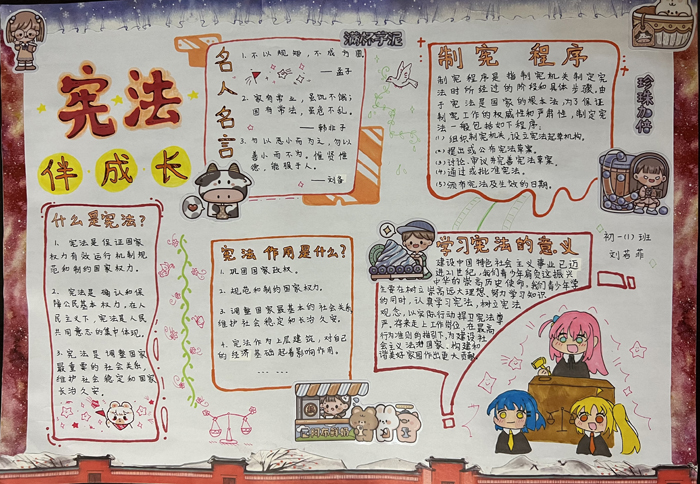 满杯芋泥
宪法
伴成长
名人名言
1. 不以规矩,不成方圆
——孟子
2. 家有常业,虽饥不饿;
国有常法,虽危不乱。
——韩非子
3. 勿以恶小而为之,勿以
善小而不为。惟贤惟
德,能服于人。
——刘备
制宪程序
制宪程序是指制宪机关制定宪
法时所经过的阶段和具体步骤,由
于宪法是国家的根本法,为了保证
制宪工作的权威性和严肃性,制定宪
法一般包括如下程序:
(1) 组织制宪机关,设立宪法起草机构。
(2) 提出或公布宪法草案。
(3) 讨论、审议并完善宪法草案。
(4) 通过或批准宪法。
(5) 颁布宪法及生效的日期。
珍珠加倍
什么是宪法?
1. 宪法是保证国家
权力有效运行机制规
范和制约国家权力。
2. 宪法是确认和保
障公民基本权力,在人
民主义下,宪法是人民
共同意志的集中体现。
3. 宪法是调整国家
最重要的社会关系,
维护社会稳定和国家
长治久安。
宪法作用是什么?
1. 巩固国家政权。
2. 规范和制约国家权力。
3. 调整国家最基本的社会关系
维护社会稳定和长治久安。
4. 宪法作为上层建筑,对自己
的经济基础起着影响作用。
... ...
学习宪法的意义
建设中国特色社会主义事业已迈
进21世纪,我们青少年肩负这振兴
中华的崇高历史使命,我们青少年学
生要在树立崇高远大理想、努力学习知识
的同时,认真学习宪法,树立宪法
观念,以实际行动捍卫宪法尊
严,将来走上工作岗位,在最高
行为准则的指引下,为建设社
会主义法治国家、构建和
谐美好家园作出更大贡献
初一(1)班
刘